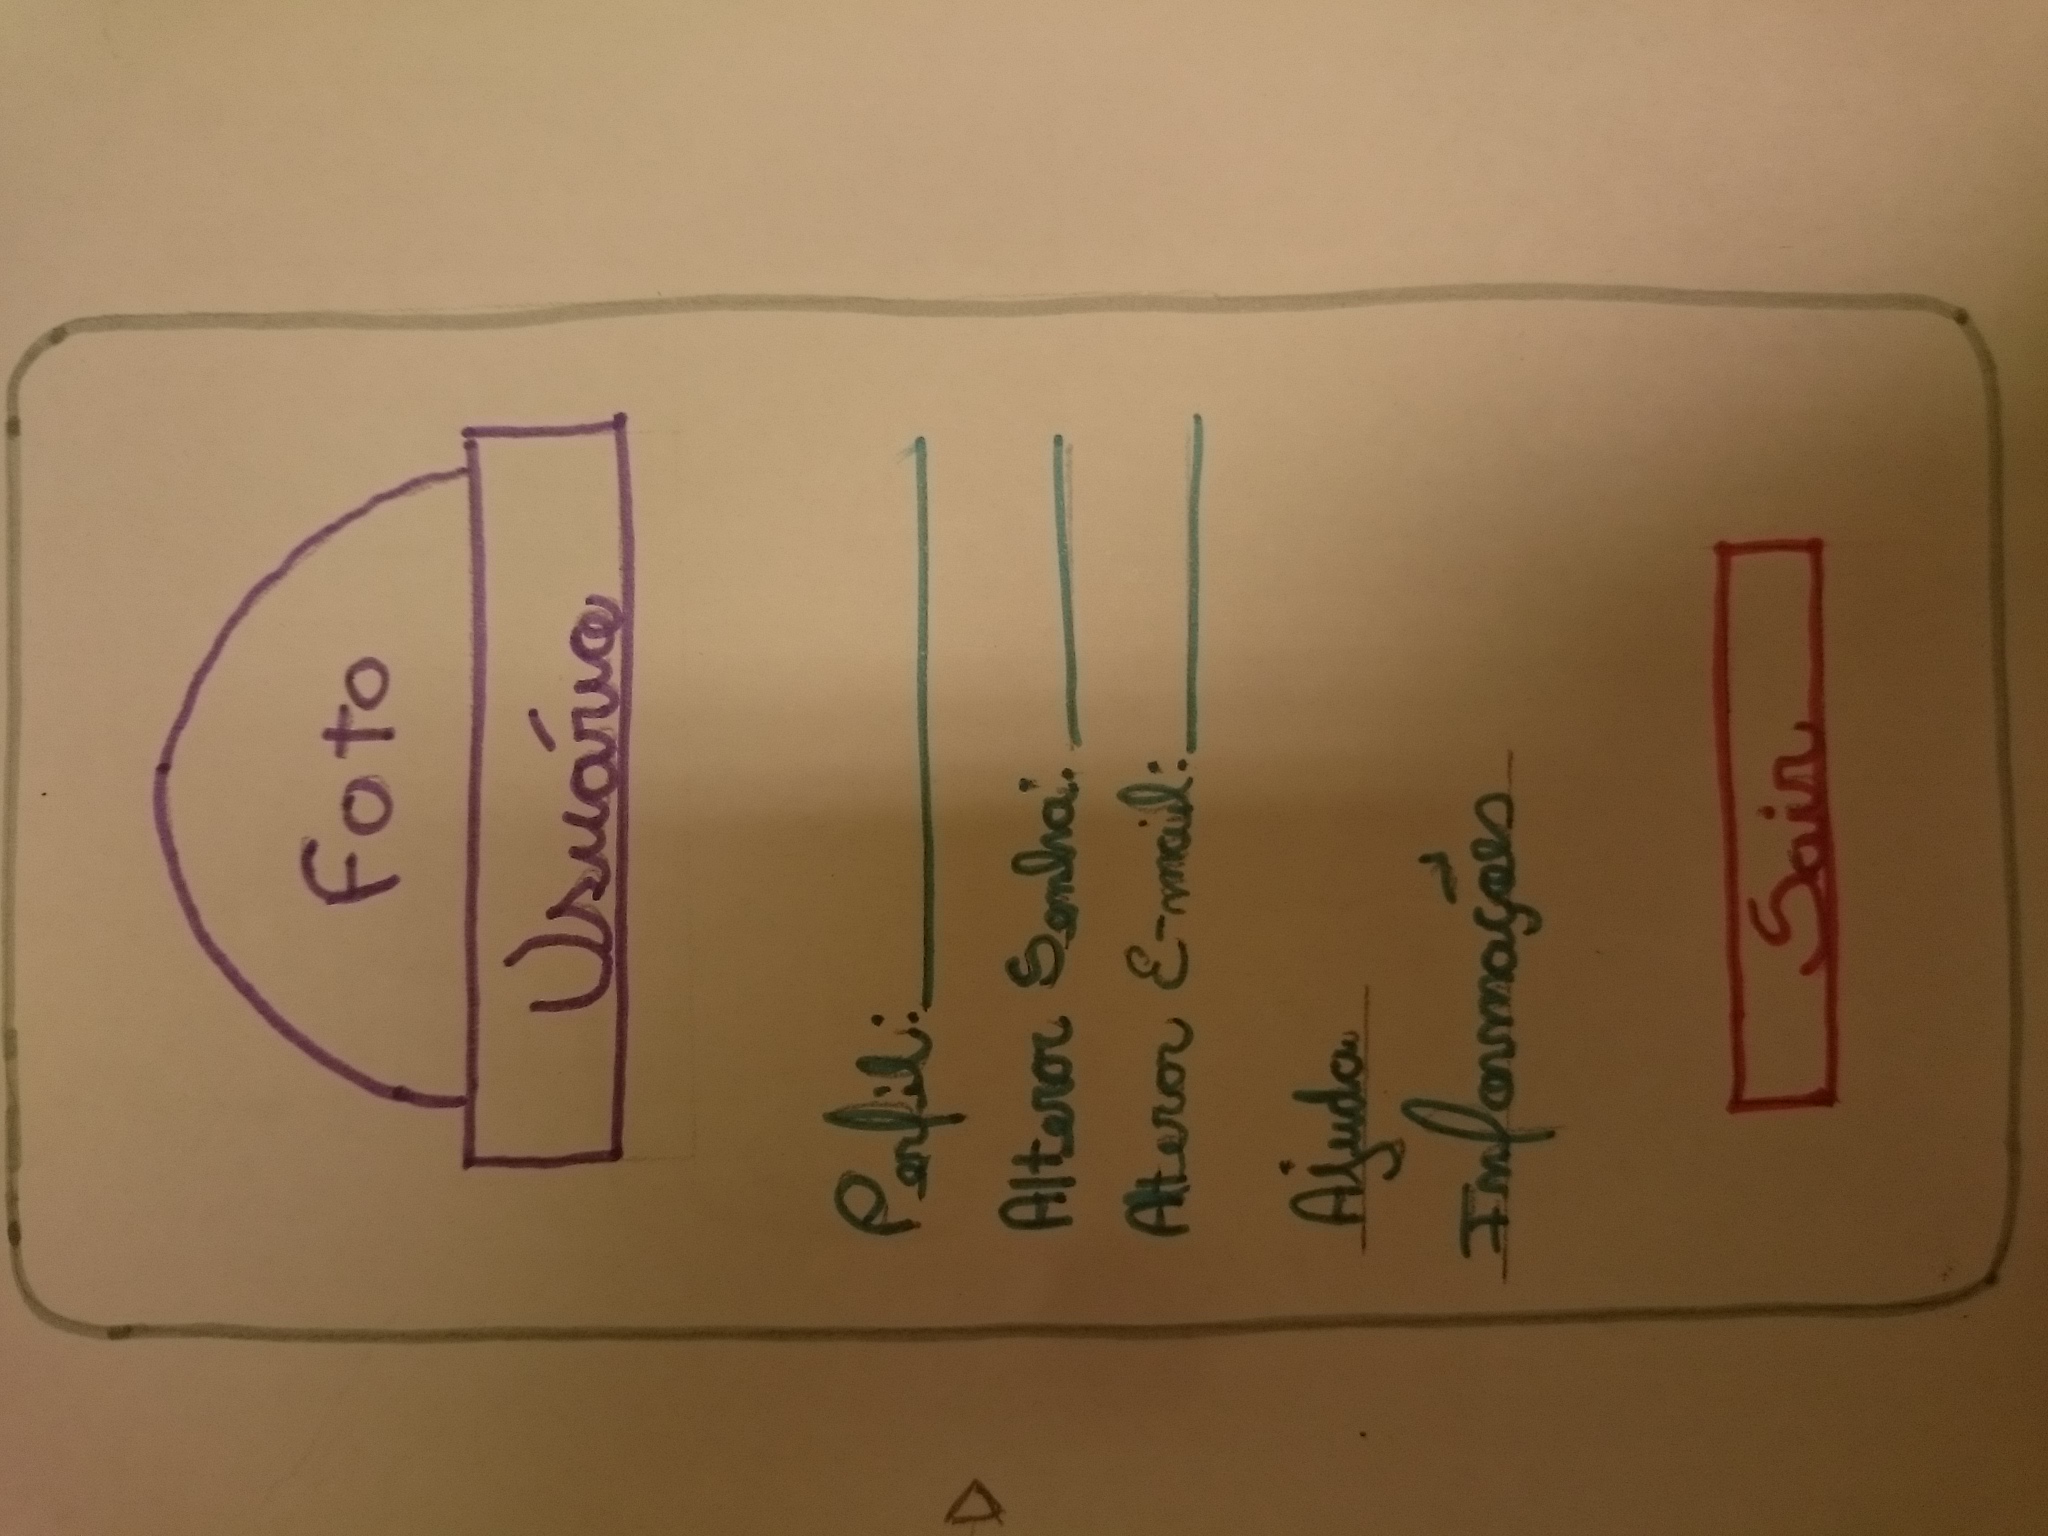 Foto
Usuário
Perfil:
Alterar Senha:
Alterar E-mail:
Ajuda
Informações
Sair